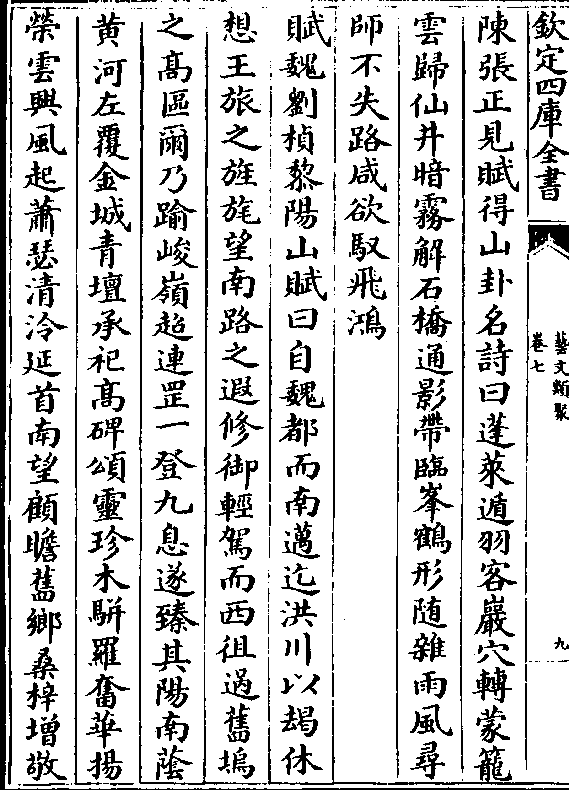 欽定四庫全書
藝文類聚
卷七
九
陳張正見賦得山卦名詩曰蓬萊遁羽客巖穴轉蒙籠
雲歸仙井暗霧解石橋通影帶臨峯鶴形随雜雨風尋
師不失路咸欲馭飛鴻
賦魏劉楨黎陽山賦曰自魏都而南邁迄洪川以朅休
想王旅之旌旄望南路之遐修御輕駕而西徂過舊塢
之髙區爾乃踰峻嶺超連罡一登九息遂臻其陽南蔭
黄河左覆金城青壇承祀髙碑頌靈珍木駢羅奮華揚
榮雲興風起蕭瑟清泠延首南望顧瞻舊鄉桑梓增敬